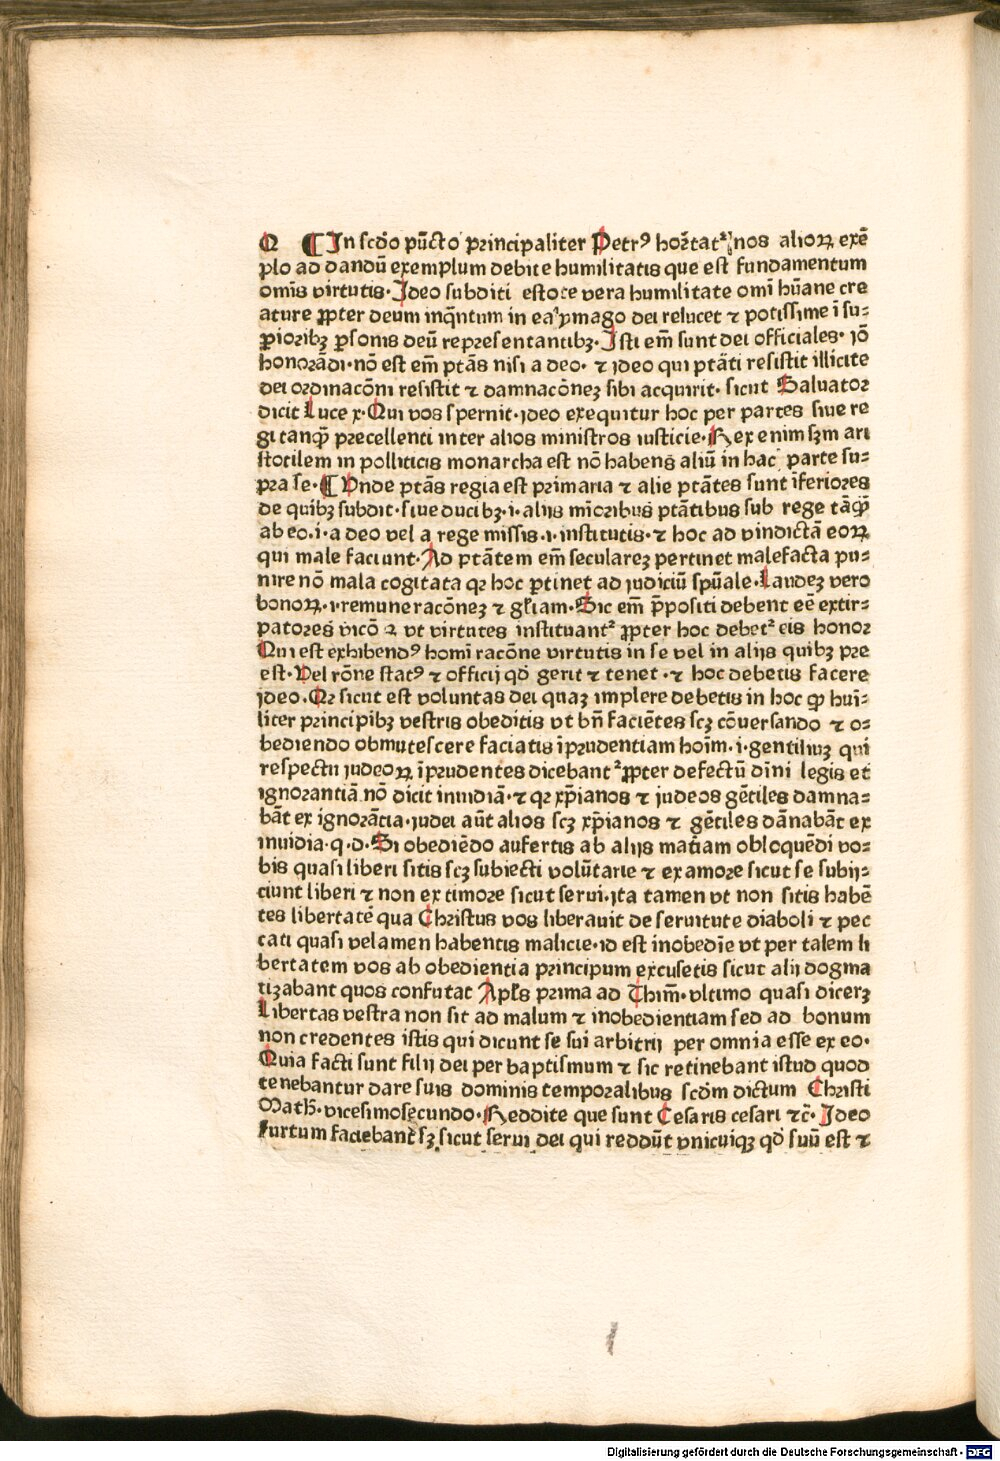 Q ¶ In scd̄o pūcto principaliter Petrꝰ hor̄tatᷣ nos alioꝝ exē
plo ad dandū exemplum debite humilitatis que est fundamentum
omīs virtutis. Ideo subditi estote vera humilitate omī hūane cre
ature ꝓpter deum inq̄ntum in ea ymago dei relucet ⁊ potissime ī su⸗
ꝑioribꝫ ꝑsonis deū representantibꝫ. Isti em̄ sunt dei officiales. iō
honorādi. nō est em̄ ptās nisi a deo. ⁊ ideo qui ptāti resistit illicite
dei ordinacōni resistit ⁊ damnacōneꝫ sibi acquirit. sicut Saluator
dicit Luce x. Qui vos spernit. ideo exequitur hoc per partes siue re
gi tanq̄ꝫ precellenti inter alios ministros iusticie. Rex enim sꝫm ari
stotilem in polliticis monarcha est nō habens aliū in hac parte su⸗
pra se. ¶ Vnde ptās regia est primaria ⁊ alie ptātes sunt īferiores
de quibꝫ subdit. siue ducibꝫ. i. alijs mīoribus ptātibus sub rege tāq̄ꝫ
ab eo. i. a deo vel a rege missis. i. institutis. ⁊ hoc ad vindictā eoꝝ
qui male faciunt. Ad ptātem em̄ seculareꝫ pertinet malefacta pu⸗
nire nō mala cogitata qꝛ hoc ꝑtinet ad iudiciū spūale. Laudeꝫ vero
bonoꝝ. i. remuneracōneꝫ ⁊ gl̄iam. Sic em̄ p̄positi debent eē extir⸗
patores vicōꝝ vt virtutes instituantᷣ ꝓpter hoc debetᷣ eis honor
Qui est exhibendꝰ homī racōne virtutis in se vel in alijs quibꝫ pre
est. Vel rōne statꝰ ⁊ officij qd̄ gerit ⁊ tenet. ⁊ hoc debetis facere
ideo. Qꝛ sicut est voluntas dei quaꝫ implere debetis in hoc ꝙ huī⸗
liter principibꝫ vestris obeditis vt bn̄ faciētes scꝫ cōuersando ⁊ o⸗
bediendo obmutescere faciatis īprudentiam hoīm. i. gentiliuꝫ qui
respectu iudeoꝝ īprudentes dicebantᷣ ꝓpter defectū dīni legis et
ignorantiā nō dicit inuidiā. ⁊ qꝛ xp̄ianos ⁊ iudeos gētiles damna⸗
bāt ex ignorātia. iudei aūt alios scꝫ xp̄ianos ⁊ gētiles dānabāt ex
inuidia. q. d. Si obediēdo aufertis ab alijs mat̄iam obloquēdi vo⸗
bis quasi liberi sitis scꝫ subiecti volūtarie ⁊ ex amore sicut se subij⸗
ciunt liberi ⁊ non ex timore sicut serui. ita tamen vt non sitis habē
tes libertatē qua Christus vos liberauit de seruitute diaboli ⁊ pec
cati quasi velamen habentis malicie. id est inobedīe vt per talem li
bertatem vos ab obedientia principum excusetis sicut alij dogma
tiꝫabant quos confutat Apl̄s prima ad Thim̄. vltimo quasi dicerꝫ
Libertas vestra non sit ad malum ⁊ inobedientiam sed ad bonum
non credentes istis qui dicunt se sui arbitrij per omnia esse ex eo.
Quia facti sunt filij dei per baptismum ⁊ sic retinebant istud quod
tenebantur dare suis dominis temporalibus scdm̄ dictum Christi
Math̄. vicesimosecundo. Reddite que sunt Cesaris cesari ⁊c̄. Ideo
furtum faciebant sꝫ sicut serui dei qui reddūt vnicuiqꝫ qd̄ suū est ⁊
Digitalisierung gefördert durch die Deutsche Forschungsgemeinschaft - DFG